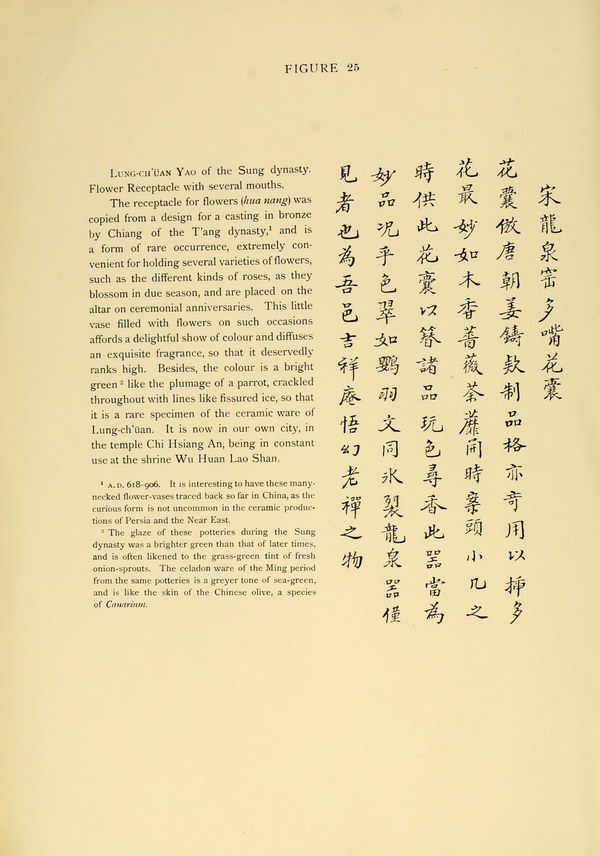 FIGURE 25
LUNG-CH'ÜAN YAO of the Sung dynasty.
Flower Receptacle with several mouths.
The receptacle for flowers (hua nang) was
copied from a design for a casting in bronze
by Chiang of the T'ang dynasty,¹ and is
a form of rare occurrence, extremely con-
venient for holding several varieties of flowers,
such as the different kinds of roses, as they
blossom in due season, and are placed on the
altar on ceremonial anniversaries. This little
vase filled with flowers on such occasions
affords a delightful show of colour and diffuses
an exquisite fragrance, so that it deservedly
ranks high. Besides, the colour is a bright
green ² like the plumage of a parrot, crackled
throughout with lines like fissured ice, so that
it is a rare specimen of the ceramic ware of
Lung-ch'üan. It is now in our own city, in
the temple Chi Hsiang An, being in constant
use at the shrine Wu Huan Lao Shan.
¹ A.D. 618-906. It is interesting to have these many-
necked flower-vases traced back so far in China, as the
curious form is not uncommon in the ceramic produc-
tions of Persia and the Near East.
² The glaze of these potteries during the Sung
dynasty was a brighter green than that of later times,
and is often likened to the grass-green tint of fresh
onion-sprouts. The celadon ware of the Ming period
from the same potteries is a greyer tone of sea-green,
and is like the skin of the Chinese olive, a species
of Canarium.
宋龍泉窑多嘴花囊
花囊倣唐朝姜鑄欵制品格亦奇用以挿多
花最妙如木香薔薇荼蘼開時案頭小几之
時供此花囊以簪諸品玩色尋香此器當為
妙品况乎色翠如鸚羽文同氷裂龍泉器僅
見者也為吾邑吉祥庵悟幻老禪之物